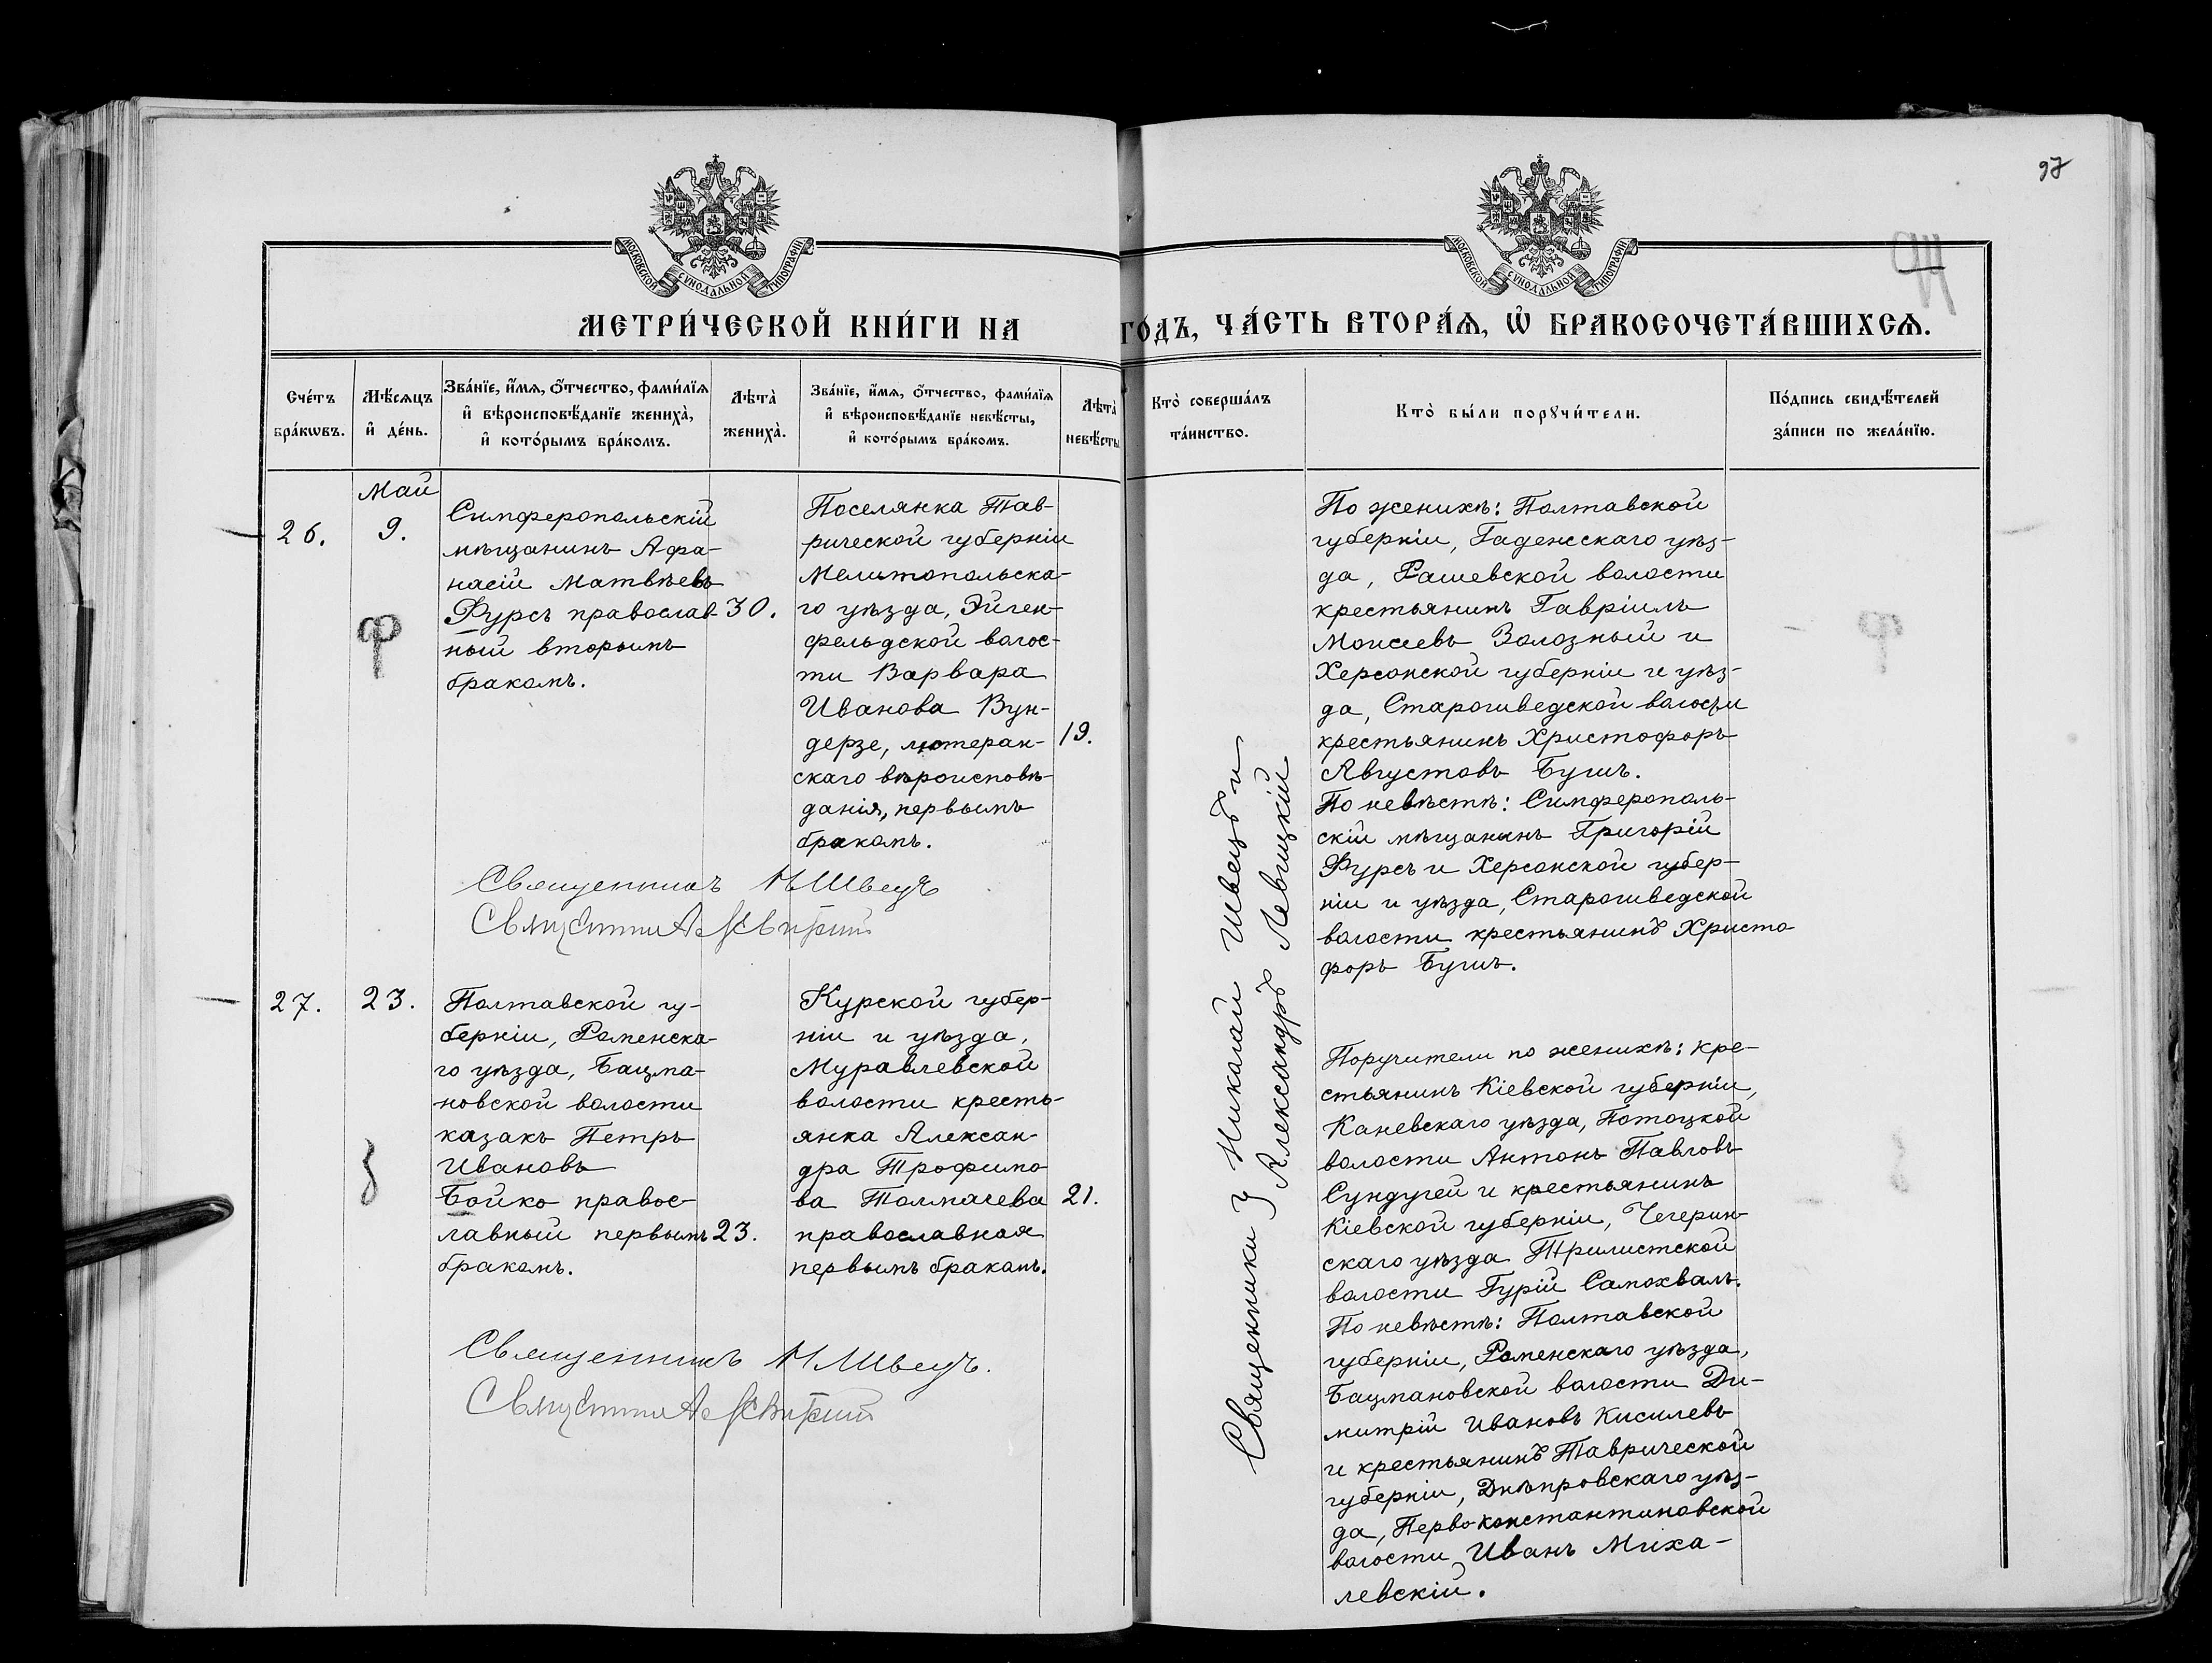 97
94
МОСКОВСКОЙ СѴНОДАЛЬНОЙ ТИПОГРАФІИ
МОСКОВСКОЙ СѴНОДАЛЬНОЙ ТИПОГРАФІИ
МЕТРИ́ЧЕСКОЙ КНИ́ГИ НА
ГО́ДЪ, ЧА́СТЬ ВТОРА́Ѧ, Ѽ БРАКОСОЧЕТА́ВШИХСѦ.
Сче́тъ
бра́кѡвъ.
Мѣ́сяцъ
и҆ де́нь.
Зва́нїе, и҆́мѧ, ѻ҆́тчество, фами́лїѧ
и҆ вѣроисповѣ́данїе жениха̀,
и҆ кото́рымъ бра́комъ.
Лѣта̀
жениха̀.
Зва́нїе, и҆́мѧ, ѻ҆́тчество, фами́лїѧ
и҆ вѣроисповѣ́данїе невѣ́сты,
и҆ кото́рымъ бра́комъ.
Лѣта̀
невѣ́сты
Кто̀ соверша́лъ
та́инство.
Кто̀ бы́ли порꙋчи́тели.
По́дпись свидѣ́телей
за́писи по жела́нїю.
26.
Май
9.
ф
Симферопольскій
мѣщанинъ Афа-
насій Матвѣевъ
Фурсъ православ-
ный вторымъ
бракомъ.
30.
Поселянка Тав-
рической губерніи
Мелитопольска-
го уѣзда, Эйген-
фельдской волос-
ти Варвара
Иванова Вун-
дерзе, лютеран-
скаго вѣроисповѣ-
данія, первымъ
бракомъ.
19.
Священникъ Н Швецъ
Священникъ А Левицкій
По женихѣ: Полтавской
губерніи, Гадежскаго уѣз-
да, Рашевской волости
крестьянинъ Гавріилъ
Моисеевъ Золозный и
Херсонской губерніи и уѣз-
да, Старошведской волости
крестьянинъ Христофоръ
Августовъ Бушъ.
По невѣстѣ: Симферополь-
скій мѣщанинъ Григорій
Фурсъ и Херсонской губер-
ніи и уѣзда, Старошведской
волости крестьянинъ Христо
форъ Бушъ.
ф
27.
23.
б
Полтавской гу-
берніи, Роменска-
го уѣзда, Бацма-
новской волости
казакъ Петръ
Ивановъ
Бойко правос-
лавный первымъ
бракомъ.
23.
Курской губер-
ніи и уѣзда,
Муравлевской
волости кресть-
янка Алексан-
дра Трофимо
ва Толмачева
православная
первымъ бракомъ.
21.
Священникъ Н Швецъ.
Священникъ А Левицкій
Священники Николай Швецъ и
Александръ Левицкій
Поручители по женихѣ: кре-
стьянинъ Кіевской губерніи,
Каневскаго уѣзда, Потоцкой
волости Антонъ Павловъ
Сундугей и крестьянинъ
Кіевской губерніи, Чегерин-
скаго уѣзда Трилистской
волости Гурій Самохвалъ.
По невѣстѣ: Полтавской
губерніи, Роменскаго уѣзда,
Бацмановской волости Ди-
митрій Ивановъ Кисилевъ
и крестьянинъ Таврической
губерніи, Днѣпровскаго уѣз-
да, Перво константиновской
волости Иванъ Миха-
левскій.